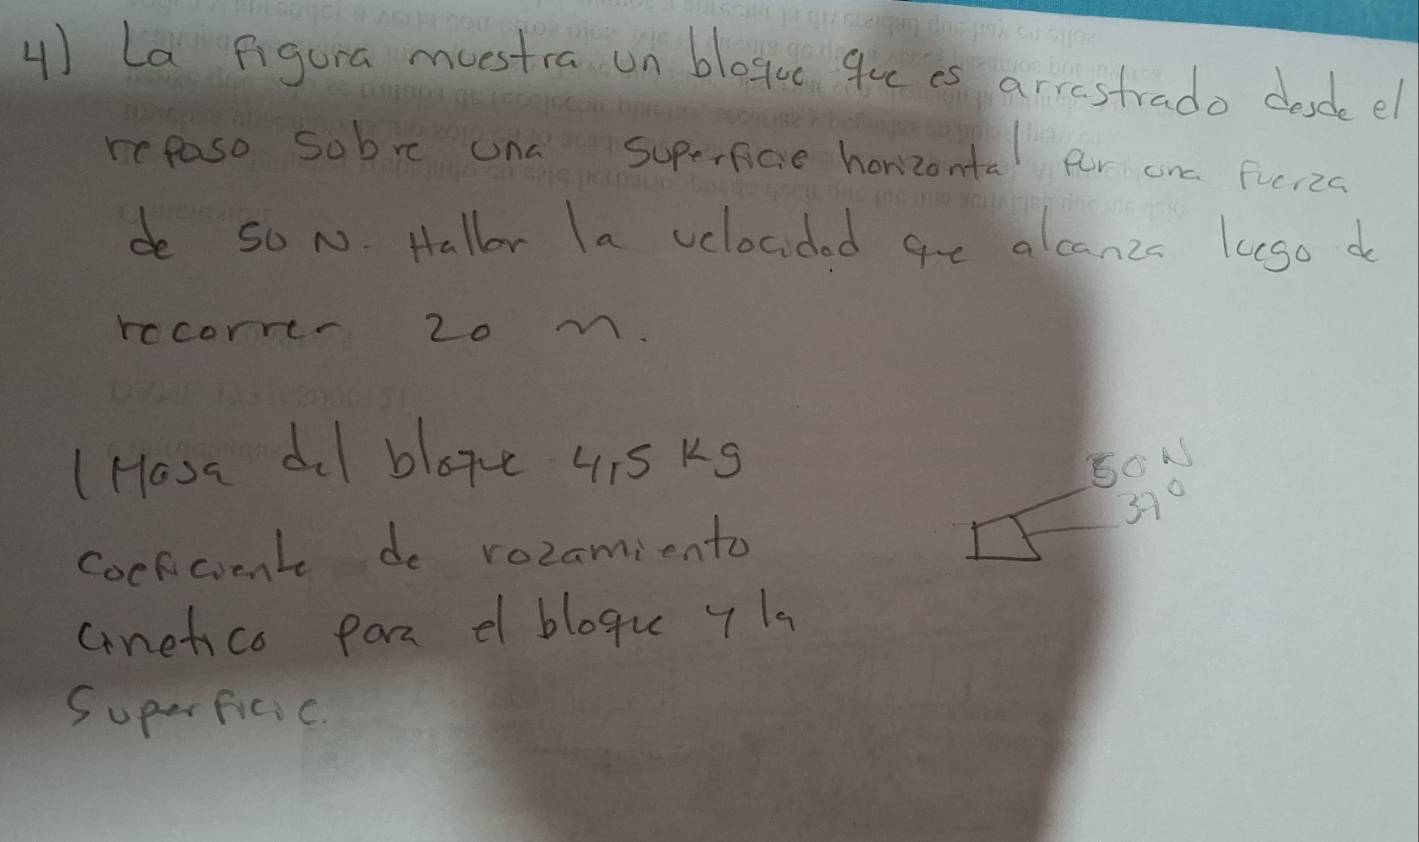 4) La figura muestra un bloque que es arrastrado desde el
repaso sobre una superficie horizontal por una fuerza
de 50 N. Hallar la velocidad que alcanza luego de
recorrer 20 m.
(Masa del bloque 4,5 Kg
50 N
37°
coeficiente de rozamiento
cinetico para el bloque y la
superficie.